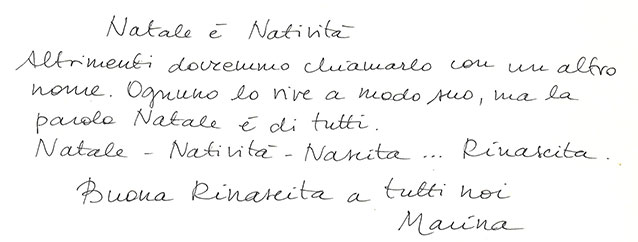 Natale è Natività
Altrimenti dovremmo chiamarlo con un altro
nome. Ognuno lo vive a modo suo, ma la
parola Natale è di tutti.
Natale - Natività - Nascita ... Rinascita.
Buona Rinascita a tutti noi
Marina